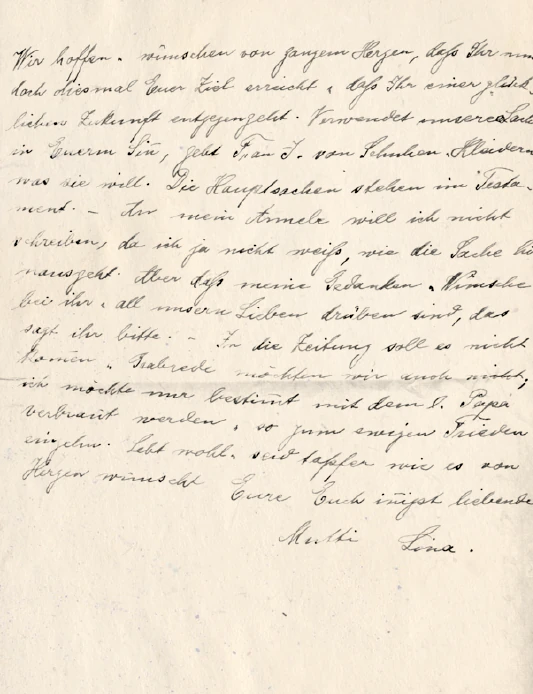 Wir hoffen u. wünschen von ganzem Herzen, daß Ihr nun
doch diesmal Euer Ziel erreicht u. daß Ihr einer glück-
lichen Zukunft entgegengeht. Verwendet unsere Sachen
in Euerm Sin̄, gebt Frau J. von Schuhen u. Kleidern
was sie will. Die Hauptsachen stehen im Testa-
ment. – An mein Annele will ich nicht
schreiben, da ich ja nicht weiß, wie die Sache hi
nausgeht. Aber daß meine Gedanken u. Wünsche
bei ihr u. all unsern Lieben drüben sind, das
sagt ihr bitte. – In die Zeitung soll es nicht
kom̄en u. Grabrede möchten wir auch nicht;
ich möchte nur bestim̄t mit dem l. Papa
verbrannt werden u. so zum ewigen Frieden
eingehn. Lebt wohl u. seid tapfer wie es von
Herzen wünscht Eure Euch in̄igst liebende
Mutti Lina.